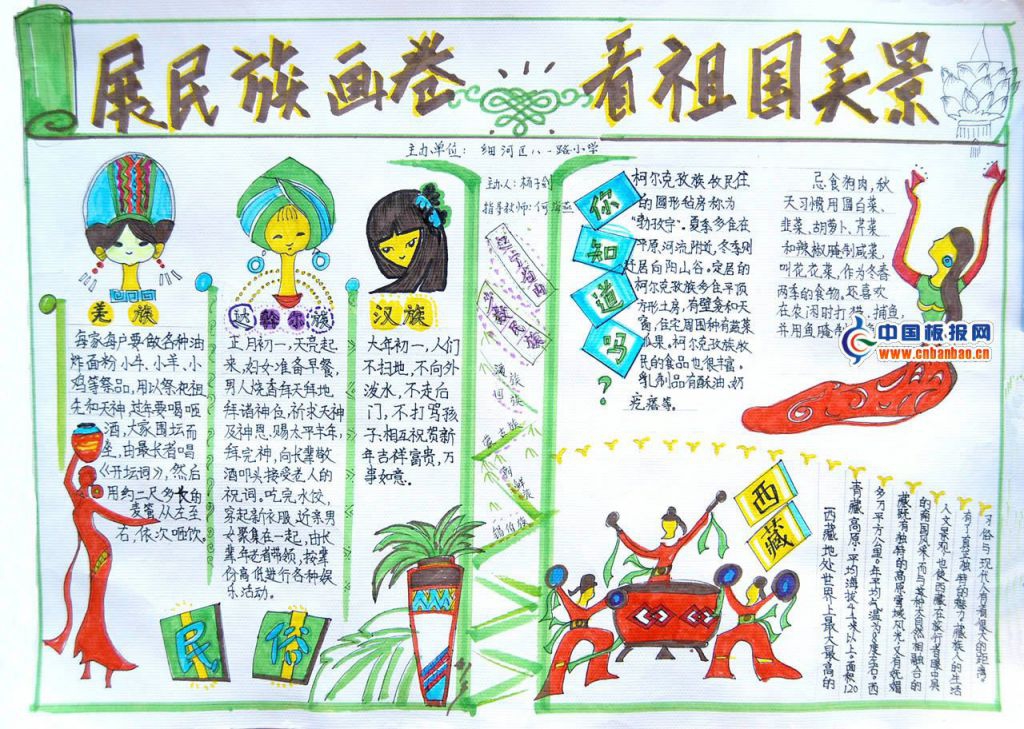 展民族画卷 看祖国美景
主办单位：细河区八一路小学
主办人：杨子剑
指导教师：何海燕
羌族
每家每户要做各种油
炸面粉小牛、小羊、小
鸡等祭品，用以祭祀祖
先和天神，过年要喝咂
酒，大家围坛而
坐，由最长者唱
《开坛词》，然后
用约二尺多长的
麦管从左至
右，依次咂饮。
达斡尔族
正月初一，天亮起
来，妇女准备早餐，
男人烧香拜天拜地，
拜诸神位，祈求天神
及神恩，赐太平丰年，
拜完神，向长辈敬
酒叩头接受老人的
祝词。吃完水饺，
穿起新衣服，近亲男
女聚集在一起，由长
辈年老者带领，按辈
份高低进行各种娱
乐活动。
汉族
大年初一，人们
不扫地，不向外
泼水，不走后
门，不打骂孩
子，相互祝贺新
年吉祥富贵，万
事如意。
民俗
少数民族
满族
回族
蒙古族
朝鲜族
锡伯族
你知道吗？
柯尔克孜族牧民住
的圆形毡房称为
“勃孜宇”。夏季多住在
平原河流附近，冬季则
赶居向阳山谷。定居的
柯尔克孜族多住平顶
方形土房，有壁龛和天
窗，住宅周围种有蔬菜
瓜果，柯尔克孜族牧
民的食品也很丰富。
乳制品有酥油、奶
疙瘩等。
忌食狗肉，秋
天习惯用圆白菜，
韭菜、胡萝卜、芹菜
和辣椒腌制咸菜，
叫花花菜，作为冬春
两季的食物。还喜欢
在农闲时打猎、捕鱼，
并用鱼腌制
中国板报网
www.cnbanbao.cn
西藏
西藏地处世界上最大最高的
青藏高原，平均海拔4千米以上。面积120
多万平方公里。年平均气温为8度左右。西
藏既有独特的高原雪域风光，又有妩媚
的南国风采，而与某种大自然相融合的
人文景观，也使西藏在旅行者眼中具
有了真正独特的魅力。藏族人的生活
习俗与现代人有着很大的距离。